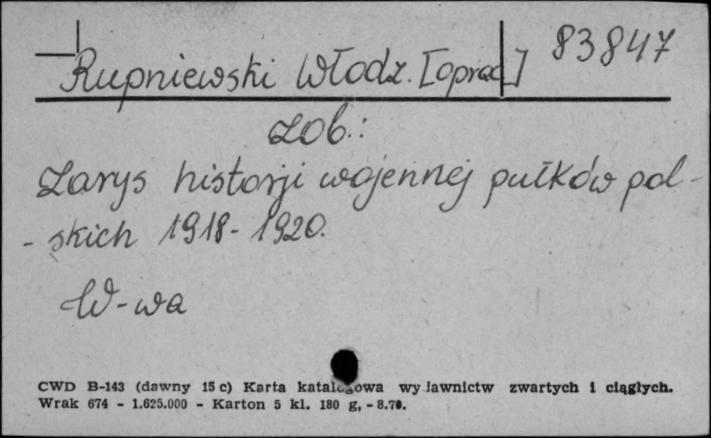 83847
Rupniewski Włodz. [oprac]
zob.:
Zarys historji wojennej pułków pol-
- skich 1918-1920.
W-wa
CWD B-143 (dawny 15 c) Karta katalogowa wydawnictw zwartych i ciągłych.
Wrak 674 - 1.625.000 - Karton 5 kl. 180 g, - 8.70.